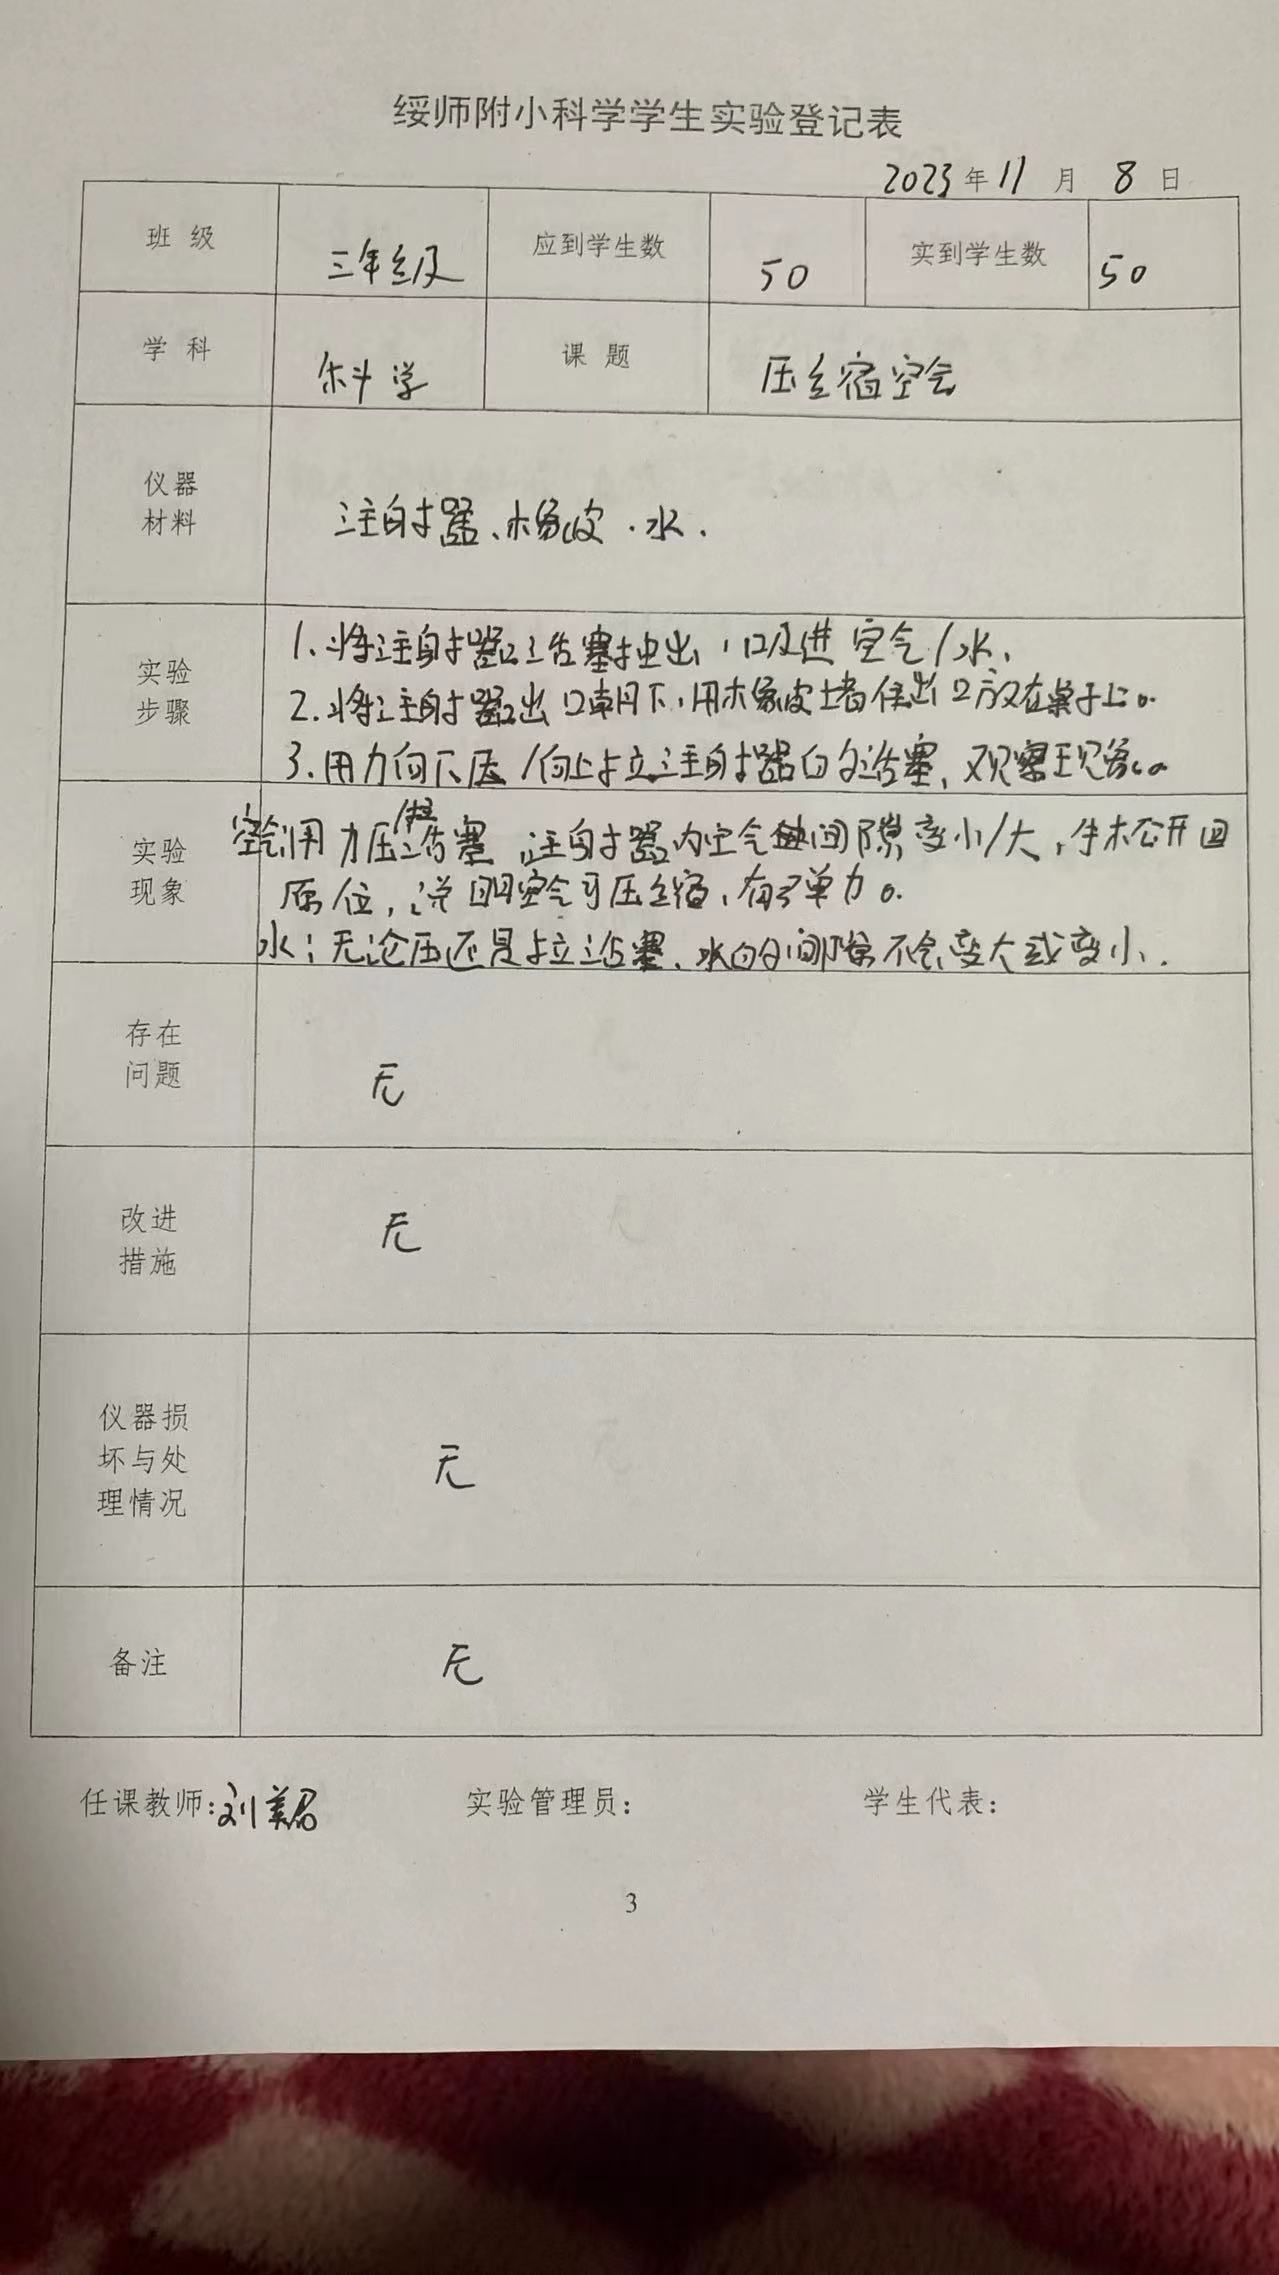 绥师附小科学学生实验登记表
2023年11月8日
班 级 三年级 应到学生数 50 实到学生数 50
学 科 科学 课 题 压缩空气
仪器
材料
注射器、橡皮.水.
实验
步骤
1.将注射器活塞抽出,吸进空气/水.
2.将注射器出口朝下,用橡皮堵住出口放在桌子上。
3.用力向下压/向上拉注射器的活塞,观察现象。
实验
现象
空气:用力压/拉活塞 注射器内空气间隙变小/大,手松开回
原位,说明空气可压缩,有弹力。
水:无论压还是拉活塞、水的间隙不会变大或变小.
存在
问题
无
改进
措施
无
仪器损
坏与处
理情况
无
备注
无
任课教师:刘美君 实验管理员: 学生代表:
3